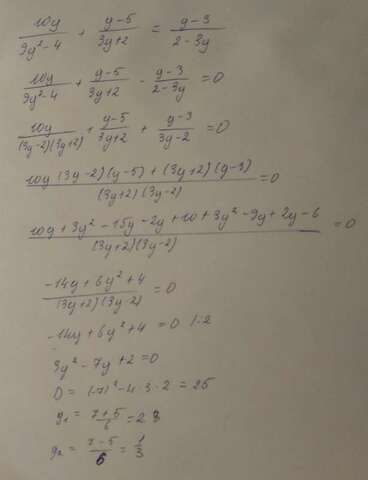 10y/(9y²-4) + (y-5)/(3y+2) = (y-3)/(2-3y)
10y/(9y²-4) + (y-5)/(3y+2) - (y-3)/(2-3y) = 0
10y/((3y-2)(3y+2)) + (y-5)/(3y+2) + (y-3)/(3y-2) = 0
(10y (3y-2)(y-5) + (3y+2)(y-3))/((3y+2)(3y-2)) = 0
(10y + 3y² - 15y - 2y + 10 + 3y² - 9y + 2y - 6)/((3y+2)(3y-2)) = 0
(-14y + 6y² + 4)/((3y+2)(3y-2)) = 0
-14y + 6y² + 4 = 0 |:2
3y² - 7y + 2 = 0
D = (-7)² - 4·3·2 = 25
y₁ = (7+5)/6 = 2
y₂ = (7-5)/6 = 1/3